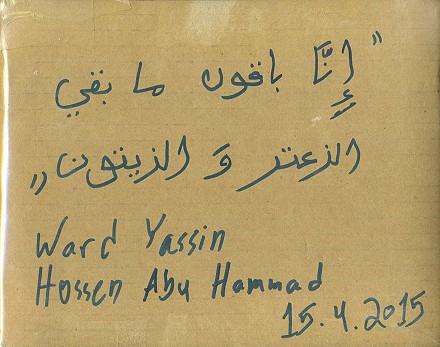 "إِنَّا باقون ما بقي
الزعتر وَ الزيتون"
Ward Yassin
Hossen Abu Hammad
15.4.2015